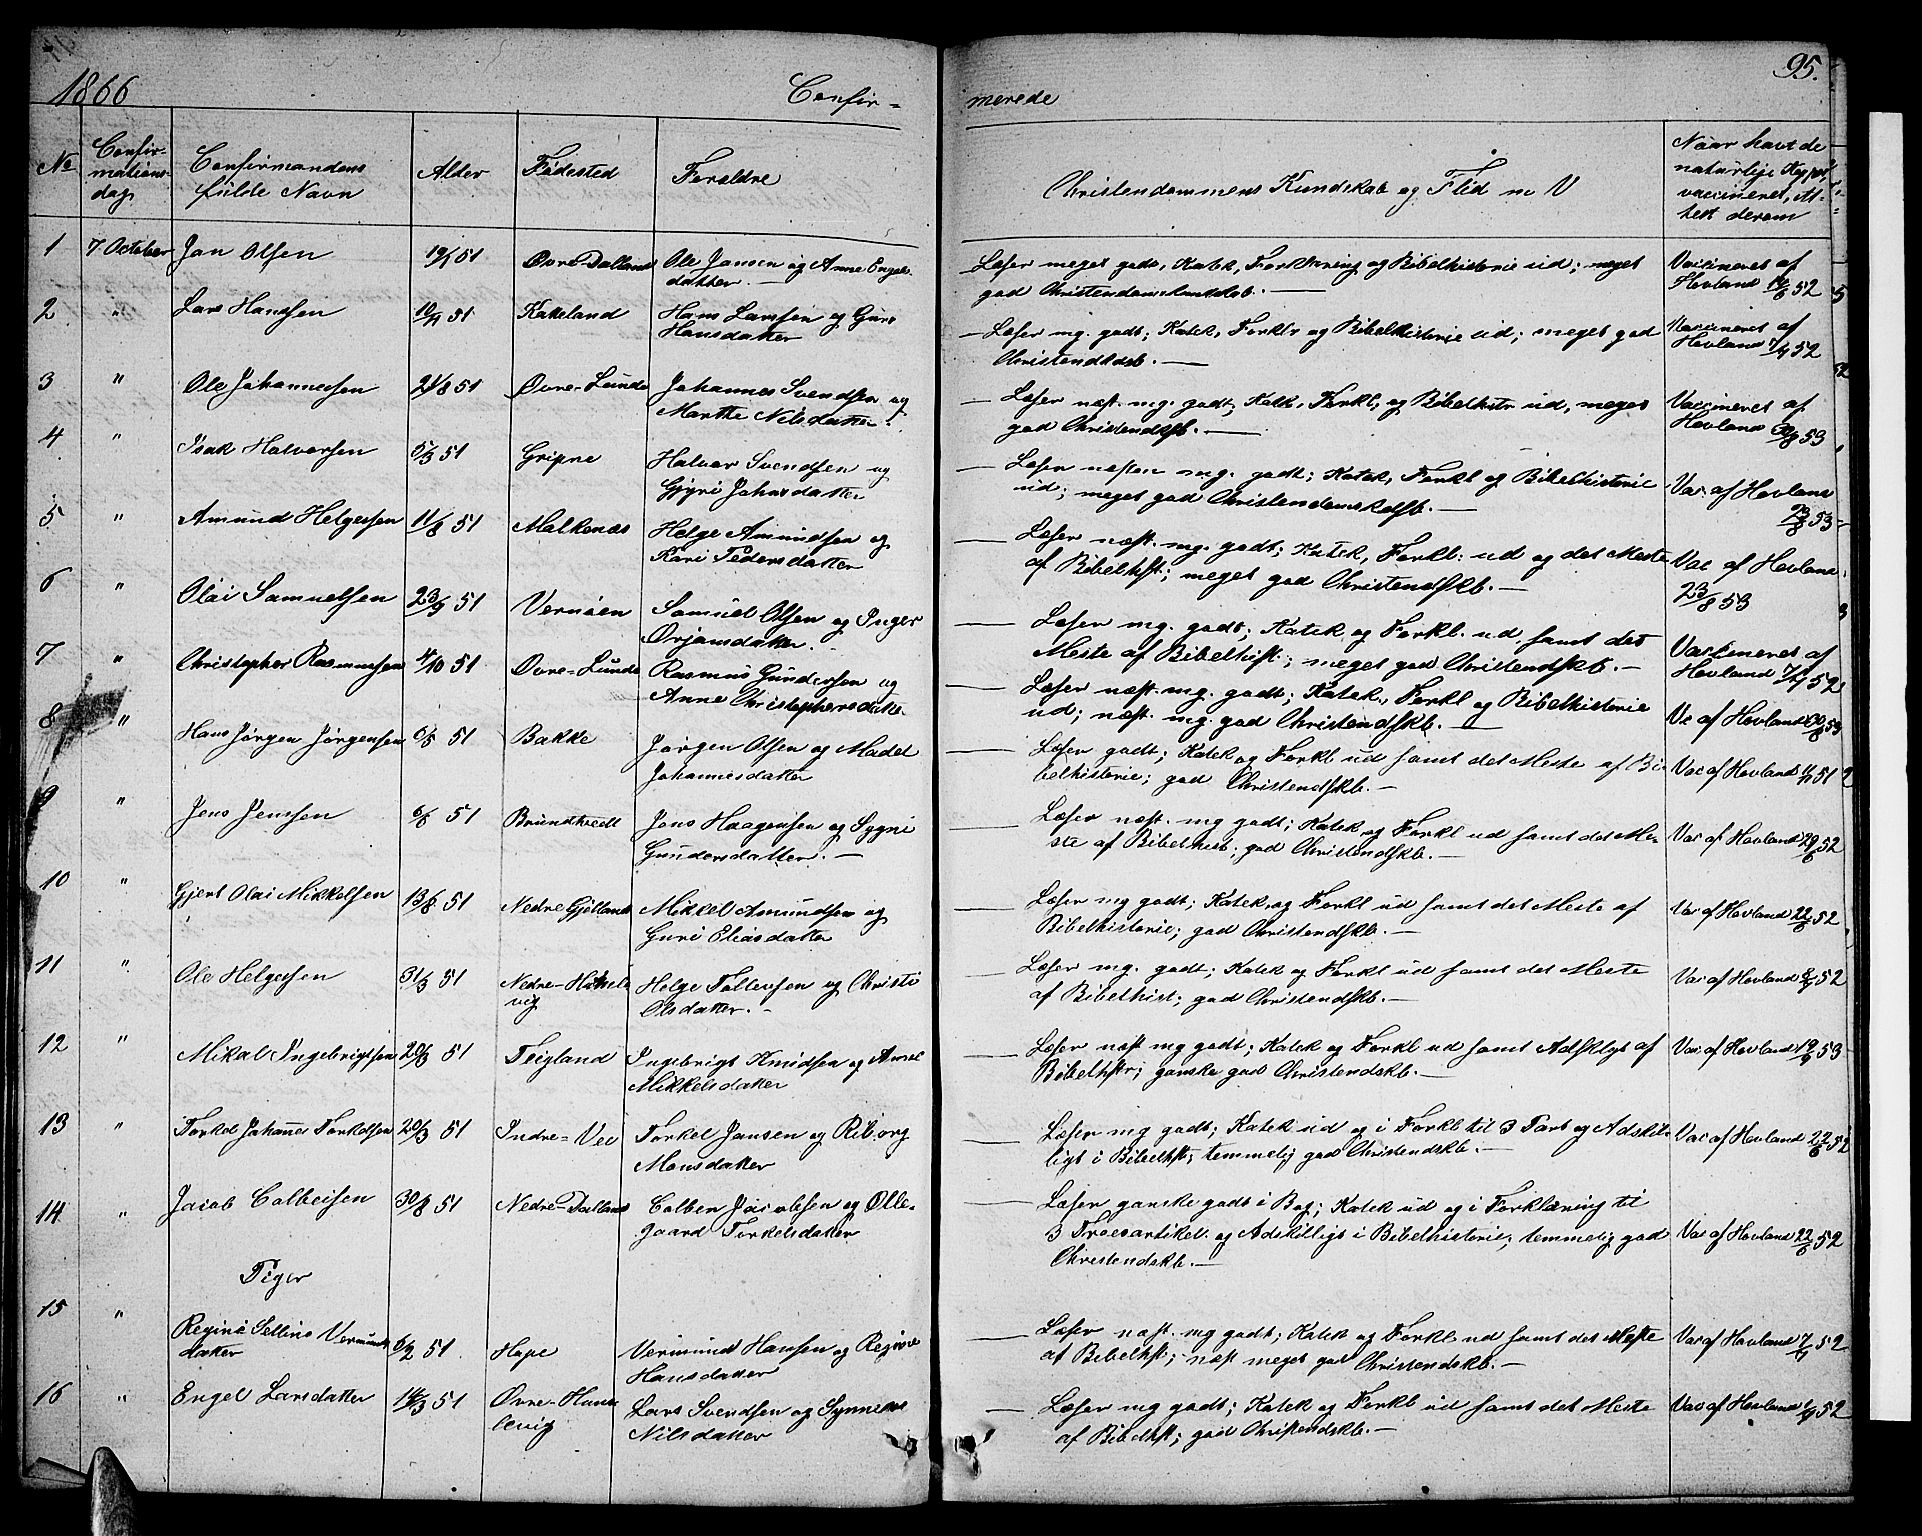 1866
Confir-
merede
95.
No
Confir-
mations-
dag
Confirmandens
fulde Navn
Alder
Fødested
Forældre
Christendommens Kundskab og Flid m V
Naar havt de
naturlige Kopper,
vaccineret, At-
test derom
1 7 October Jon Olsen 51 Øvre-Dalland Ole Jansen og Anne Engels-
datter.
Læser meget godt, Katek, Forklaring og Bibelhistorie ud; meget
god Christendomskundskab.
Vaccineret af
Hovland 52
2 " Lars Hansen 51 Kakeland Hans Larsen og Guri
Hansdatter
Læser mg. godt; Katek, Forklr og Bibelhistorie ud; meget god
Christendskb.
Vaccineret af
Hovland 52
3 " Ole Johannessen 51 Øvre-Lunde Johannes Svendsen og
Marthe Nilsdatter
Læser næst. mg. godt; Katk, Forkl, og Bibelhistr ud, meget
god Christendskb.
Vaccineret af
Hovland 53
4 " Isak Halvorsen 5/3 51 Gripne Halvor Svendsen og
Gjyri Johnsdatter
Læser næsten mg. godt; Katek, Forkl og Bibelhistorie
ud; meget god Christendomskdsb.
Vac. af Hovland
23/8 53
5 " Amund Helgesen 11/8 51 Malkenæs Helge Amundsen og
Kari Pedersdatter
Læser næst. mg. godt; Katek, Forkl. ud og det Meste
af Bibelhst; meget god Christendskb.
Vac af Hovland
23/8 53
6 " Olai Samuelsen 23/9 51 Vernøen Samuel Olsen og Inger
Ørjansdatter.
Læser mg. godt; Katek og Forkl. ud samt det
Meste af Bibelhist; meget god Christendskb.
Vaccineret af
Hovland 52
7 " Christopher Rasmussen 4/10 51 Øvre-Lunde Rasmus Gundersen og
Anne Christophersdatter
Læser næst. mg. godt; Katek, Forkl og Bibelhistorie
ud; næst. mg. god Christendskb.
Vc af Hovland 53
8 " Hans Jørgen Jørgensen 6/8 51 Bakke Jørgen Olsen og Madel
Johannesdatter
Læser godt; Katek og Forkl ud samt det Meste af Bi-
belhistorie; god Christendskb.
Vac af Hovland 51
9 " Jens Jensen 51 Brundtvedt Jens Haagensen og Sygni
Gundersdatter.
Læser næst. mg godt; Katek og Forkl ud samt det Me-
ste af Bibelhist; god Christendskb.
Vac af Hovland 52
10 " Gjert Olai Mikkelsen 13/8 51 Nedre Gjølland Mikkel Amundsen og
Guri Eliasdatter
Læser mg godt; Katek og Forkl ud samt det Meste af
Bibelhistorie; god Christendskb.
Vac af Hovland 52
11 " Ole Helgesen 31/3 51 Nedre- Helge Tollevsen og Christi
vig Olsdatter.
Læser mg. godt; Katek og Forkl ud samt det Meste
af Bibelhist; god Christendskb.
Vac af Hovland 52
12 " Mikal Ingebrigtsen 20/3 51 Teigland Ingebrigt Knudsen og Anne
Mikkelsdatter
Læser næst mg godt; Katek og Forkl ud samt Adsklgt af
Bibelhstr; ganske god Christendskb.
Vac af Hovland 53
13 " Torkel Johannes Torkelsen 20/3 51 Indre-Vee Torkel Jansen og Riborg
Monsdatter
Læser mg godt; Katek ud og i Forkl til 3 Part og Adskil-
ligt i Bibelhst; temmelig god Christendskb.
Vac af Hovland 52
14 " Jacob Colbeisen 30/8 51 Nedre-Dalland Colben Jacobsen og Olle-
gaard Torkelsdatter
Læser ganske godt i Bog; Katek ud og i Forklæring til
3 Troesartikel og Adskilligt i Bibelhistorie; temmelig god
Christendskb.
Vac af Hovland 52
Piger
15 " Regine Selline Vermunds-
datter 6/2 51 Hope Vermund Hansen og Regine
Hansdatter
Læser næst. mg godt; Katek og Forkl ud samt det Meste
af Bibelhst; næst meget god Christendskb.
Vac af Hovland 52
16 " Engel Larsdatter 14/3 51 Øvre- Lars Svendsen og Synneve
levig Nilsdatter
Læser mg godt; Katek og Forkl ud samt det Meste
af Bibelhst; god Christendskb.
Vac af Hovland 52